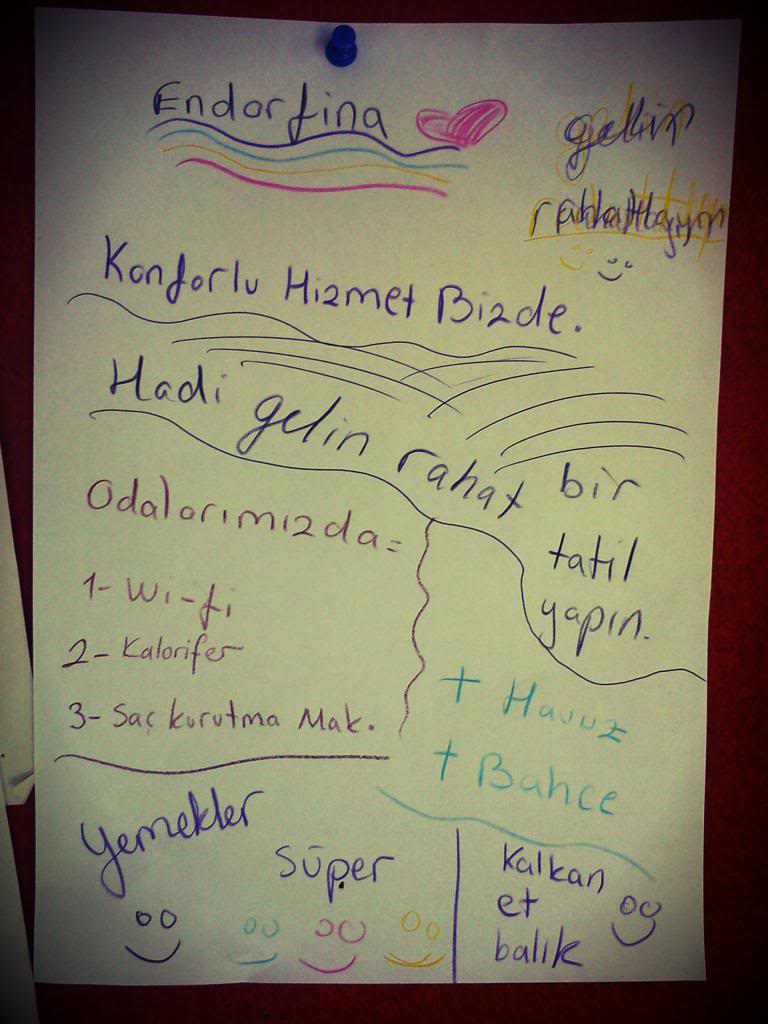 Endorfina
gelin
Konforlu Hizmet Bizde.
Hadi gelin rahat bir
tatil
yapın.
Odalarımızda=
1- Wi-fi
2- Kalorifer
3- Saç kurutma Mak.
+ Havuz
+ Bahce
Yemekler
süper
Kalkan
et
balık